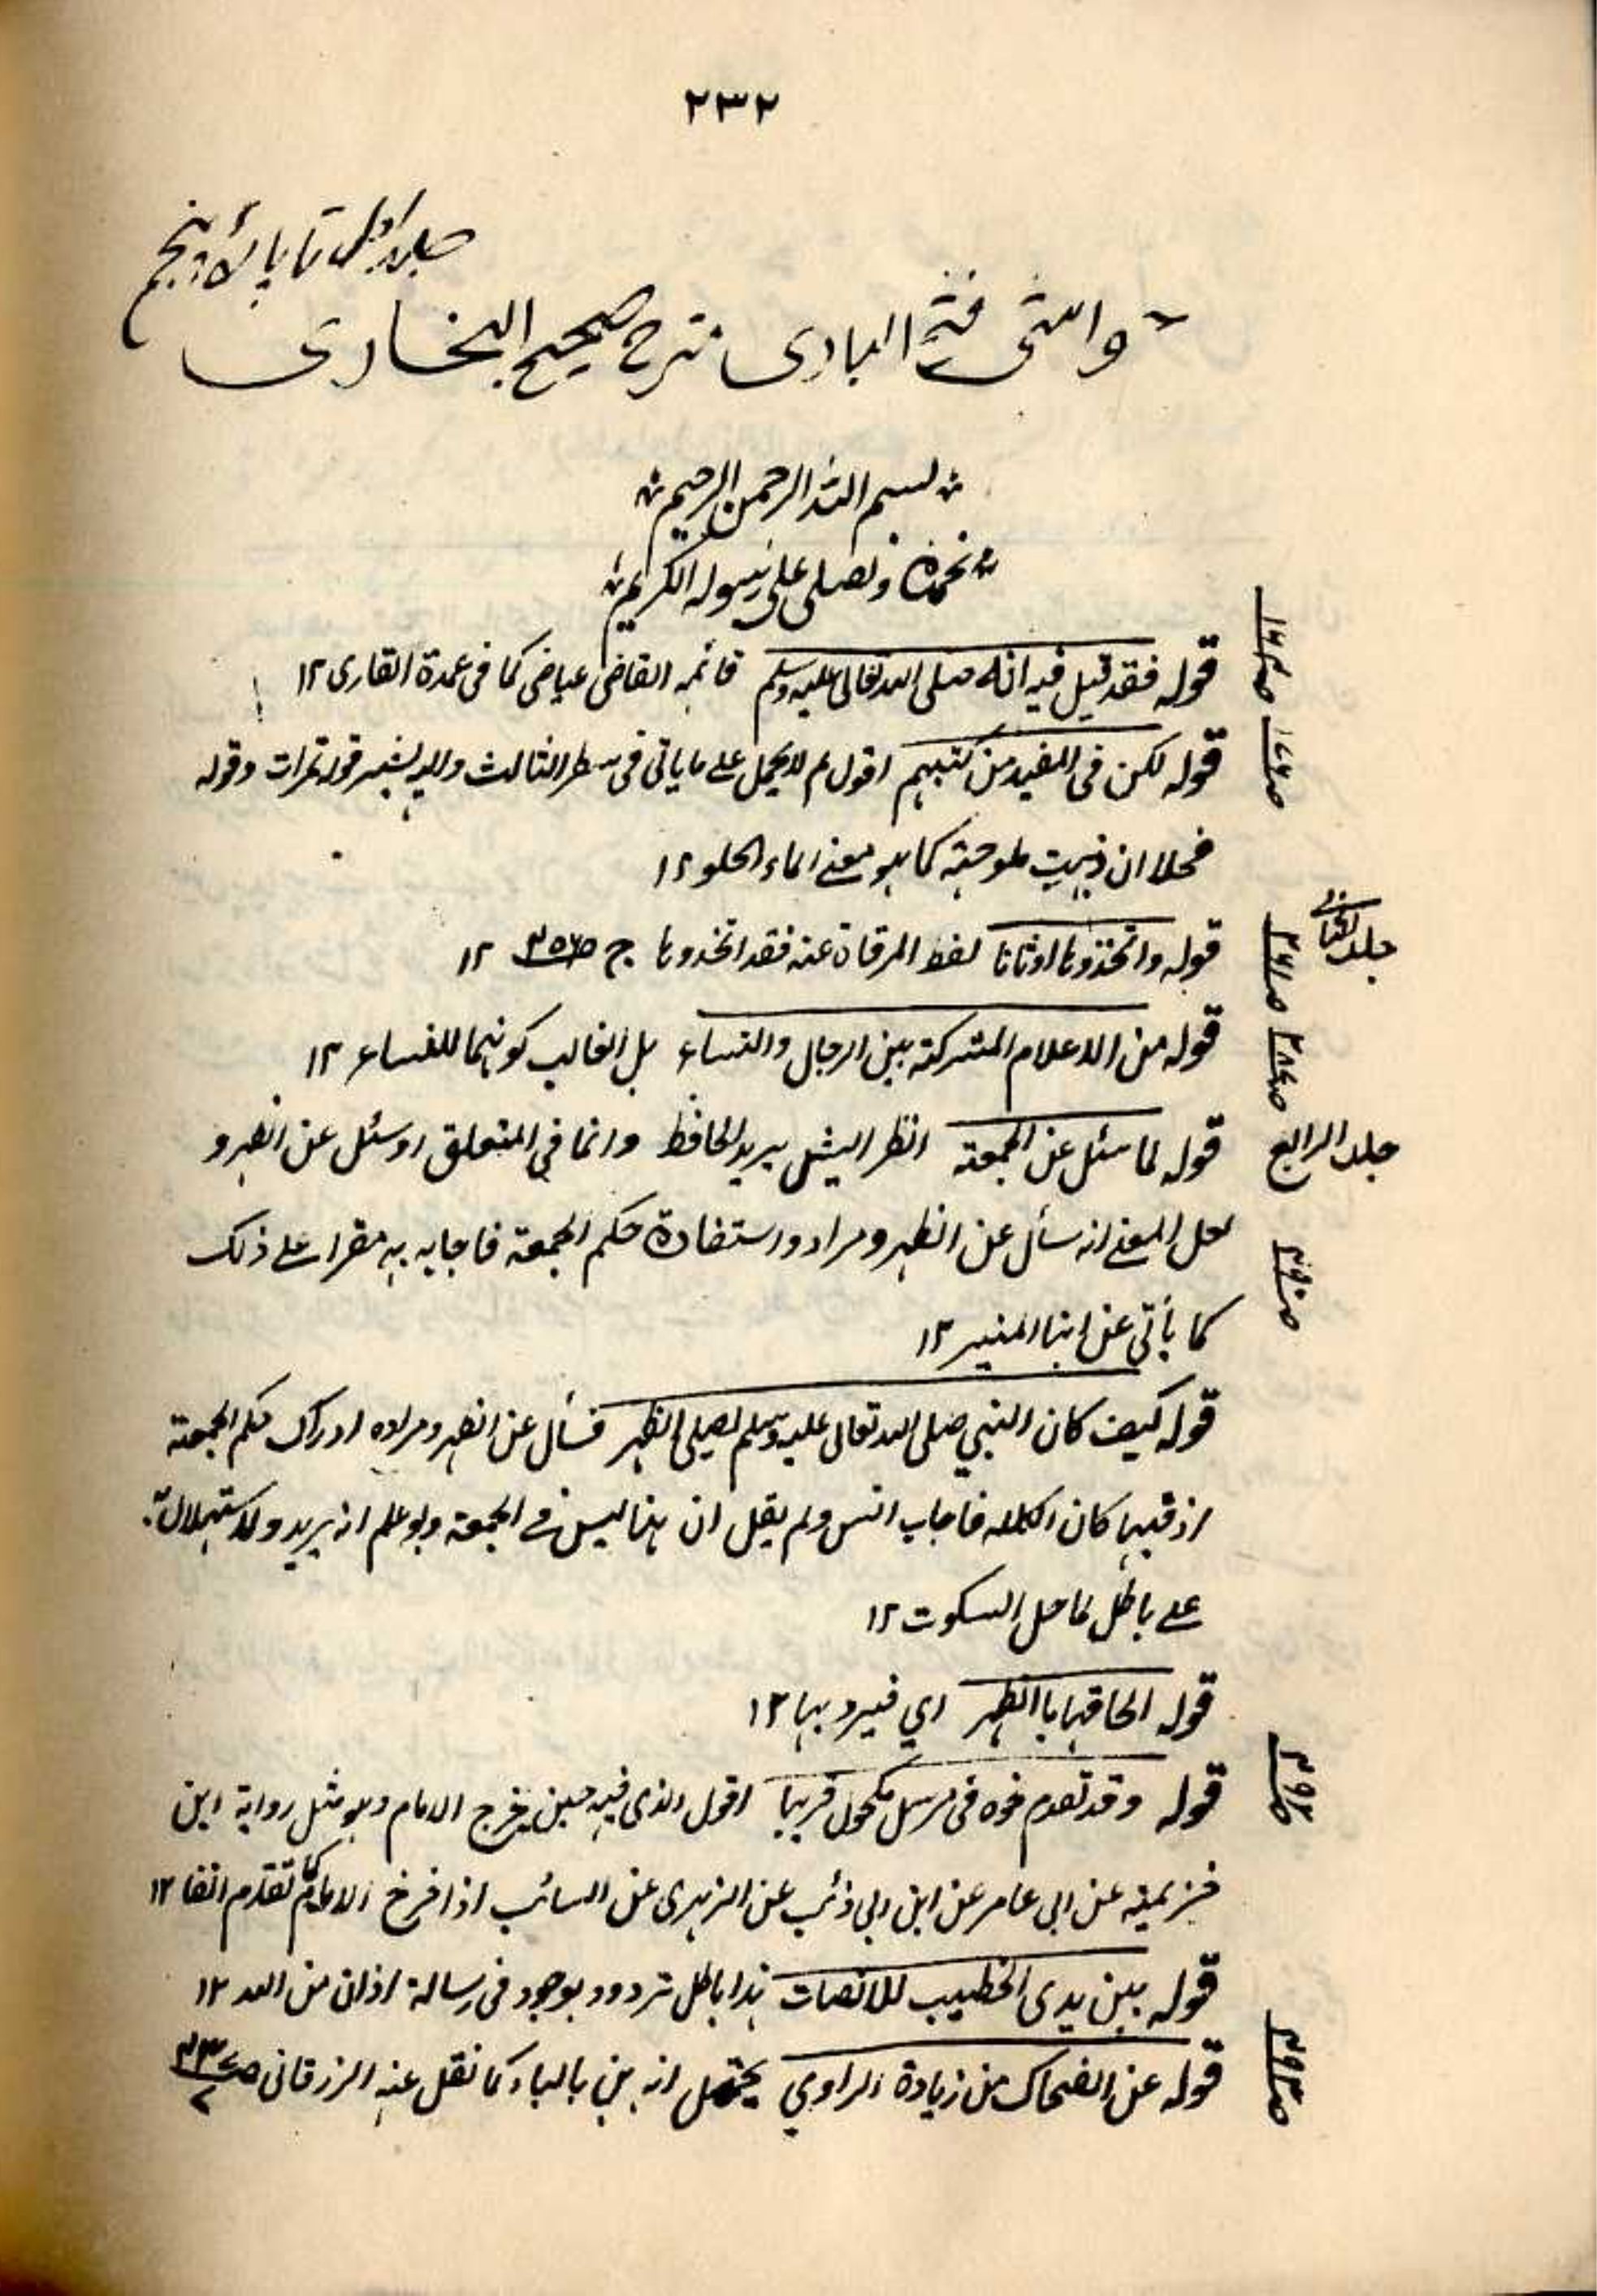 ٢٣٢
جلد اول تا پنجم
حواشی فتح الباری شرح صحیح البخاری
بسم اللہ الرحمن الرحیم
نحمدہ ونصلی علی رسولہ الکریم
قوله فقد قيل فيه انه صلى الله تعالى عليه وسلم قائله القاضى عياض كما فى عمدة القارى ١٢
قوله لكن فى المفيد من كتبهم اقول لم لا يحمل على ما ياتى فى سطر الثالث واليه يشير قوله تمرات وقوله
فحلا ان ذهبت ملوحته كما هو معنى الماء الحلو ١٢
جلد الثانى
قوله واتخذوها اوثانا لفظ المرقاة عنه فقد اتخذوها ج ١٢
قوله من الاعلام المشتركة بين الرجال والنساء بل الغالب كونهما للنساء ١٢
جلد الرابع
قوله لما سئل عن الجمعة انظر اليش يريد الحافظ وانما فى المتعلق اوسئل عن الظهر و
لعل المعنى انه سأل عن الظهر ومراده استفادة حكم الجمعة فاجابه به مقرا على ذلك
كما يأتى عن ابن المنير ١٢
قوله كيف كان النبي صلى الله تعالى عليه وسلم يصلى الظهر فسأل عن الظهر ومراده ادراك حكم الجمعة
اذ فيها كان الكلام فاجاب انس ولم يقل ان هذا ليس فى الجمعة ولو علم انه يريد والاستدلال به
على باطل لما حل السكوت ١٢
قوله الحاقها بالظهر اي فيرد بها ١٢
ص٢٩٢
قوله وقد تقدم نحوه فى مرسل مكحول قريبا اقول الذى فيه حين يخرج الامام وهو مثل رواية ابن
خزيمة عن ابى عامر عن ابن ابى ذئب عن الزهرى عن السائب اذا خرج الامام كما تقدم انفا ١٢
قوله بين يدى الخطيب للانصات هذا باطل مردود بوجوه فى رسالة اذان من الله ١٢
ص٢٩٣
قوله عن الضحاك من زيادة الراوي يحتمل انه بن بالباء كما نقل عنه الزرقانى